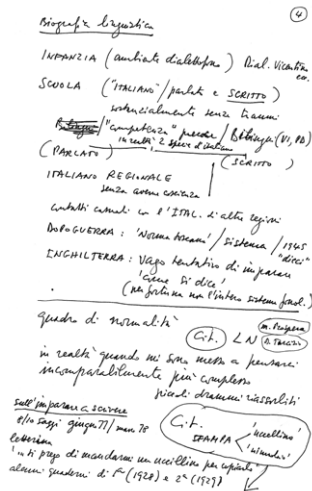 4
Biografia linguistica
INFANZIA (ambiente dialettofono) Dial. Vicentino
ecc.
SCUOLA ("ITALIANO"/parlato e SCRITTO)
sostanzialmente senza traumi
"competenza" / Bilingui (VI, PD)
in realtà 2 specie d'italiano
(PARLATO) (SCRITTO)
ITALIANO REGIONALE
senza averne coscienza
contatti casuali con l'ITAL. di altre regioni
DOPOGUERRA: 'Norma toscana' / sistema / 1945
"dieci"
INGHILTERRA: Vago tentativo di imparare
'come si dice'
(per fortuna non l'intero sistema fonol.)
quadro di normalità
Cit. LN
in realtà quando mi sono messo a pensarci
incomparabilmente più complesso
piccoli drammi riassorbiti
sull'imparare a scrivere
saggi giugno 77 / marzo 78
Cit.
STAMPA 'uccellino'
letterina
'... ti prego di mandarmi un uccellino per copiarlo'
alcuni quaderni di 1ª (1928) e 2ª (1929)